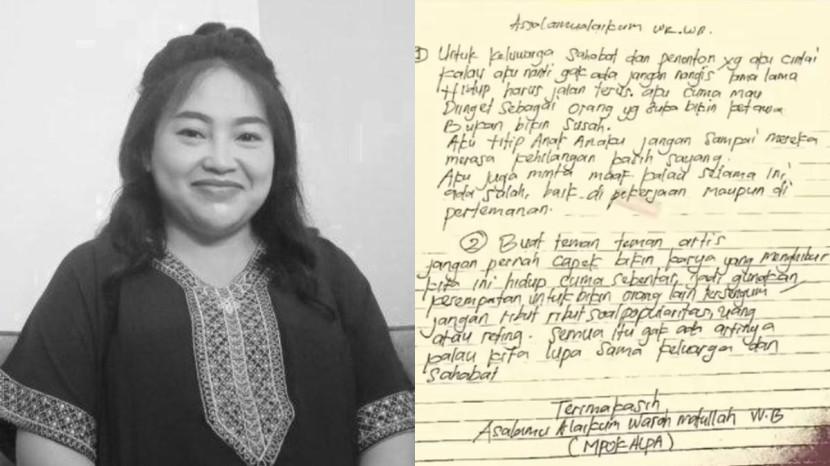 Assalamualaikum WR.WB.
① Untuk keluwarga sahabat dan penonton yg aku cintai
kalau aku nanti gak ada jangan nangis lama lama
Hidup harus jalan terus. aku cuma mau
Diinget sebagai orang yg suka bikin ketawa
Bukan bikin susah.
Aku titip Anak Anaku jangan sampai mereka
merasa kehilangan kasih sayang.
Aku juga minta maaf kalau selama ini,
ada salah, baik di pekerjaan maupun di
pertemanan.
② Buat teman teman artis
jangan pernah capek bikin karya yang menghibur
kita ini hidup cuma sebentar, jadi gunakan
kesempatan untuk bikin orang lain tersenyum
jangan ribut ribut soal popularitas, uang
atau reting. Semua itu gak ada artinya
kalau kita lupa sama keluarga dan
sahabat
Terimakasih
Asalamu Alaikum Warah matullah W.B
(MPOK ALPA)